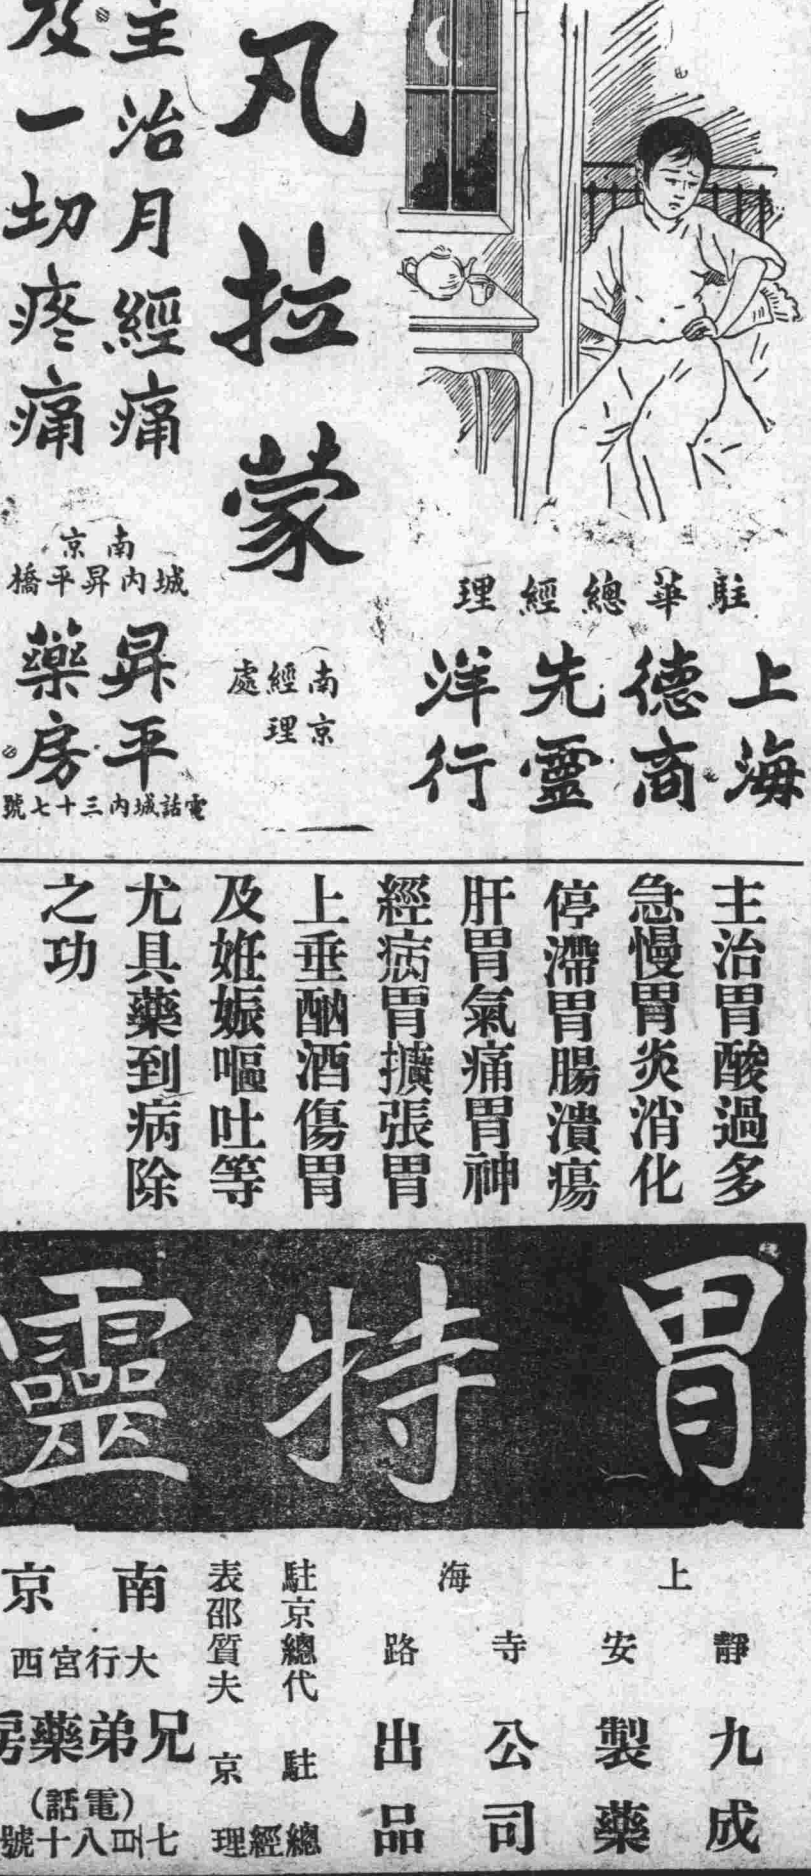 凡拉蒙
主治月經痛
及一切疼痛
駐華總經理
上海
德商
先靈
洋行
南京
經理
處
南京
城內昇平橋
昇平
藥房
電話城內三十七號
主治胃酸過多
急慢胃炎消化
停滯胃腸潰瘍
肝胃氣痛胃神
經病胃擴張胃
上垂酗酒傷胃
及姙娠嘔吐等
尤具藥到病除
之功
胃特靈
上海
靜安寺路
九成
製藥
公司
出品
駐京總代
表邵質夫
駐京
總經理
南京
大行宮西
兄弟藥房
(電話)
七百八十號